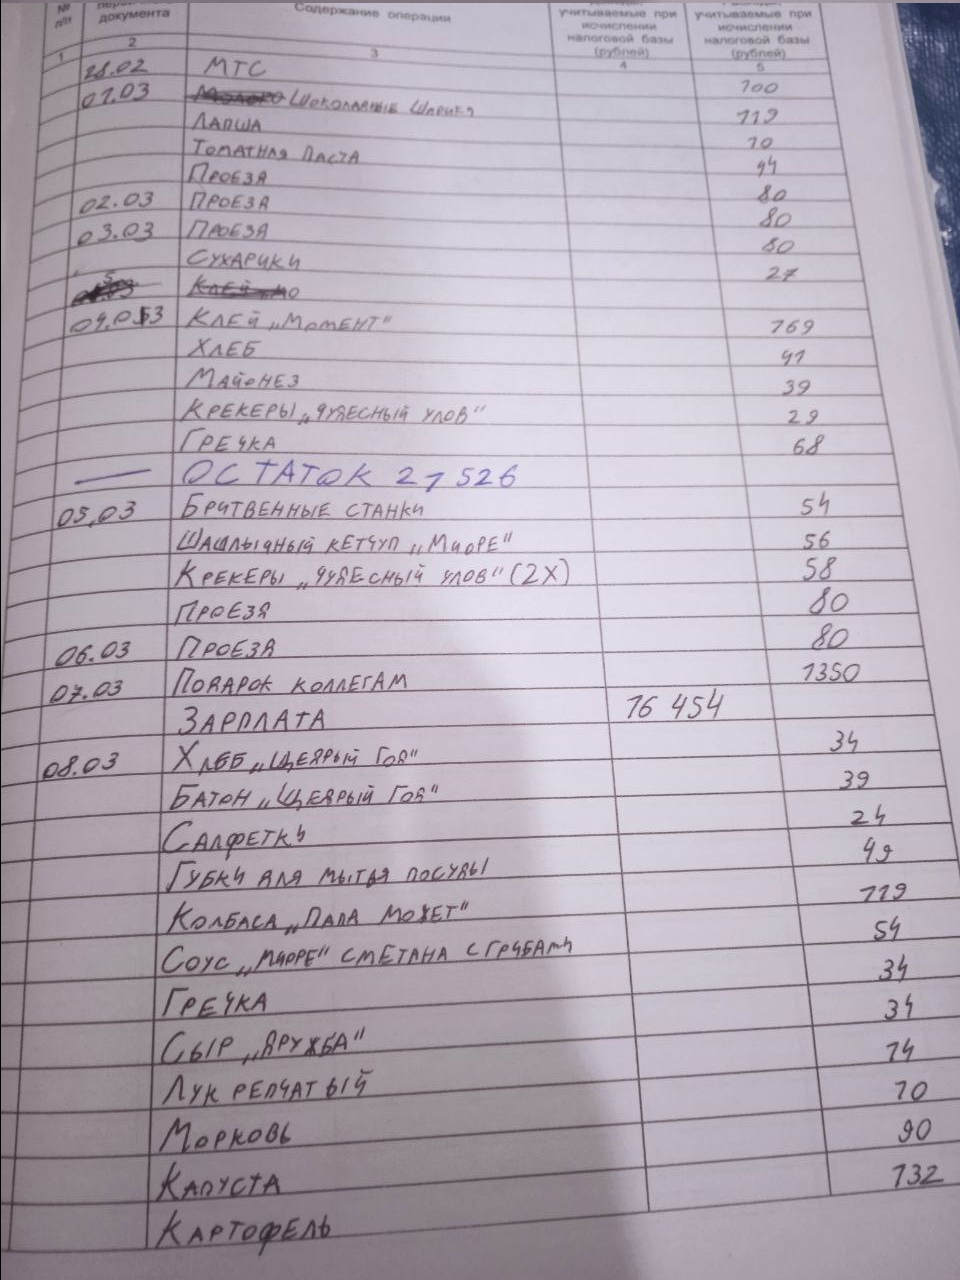 № п/п
документа
Содержание операции
учитываемые при исчислении налоговой базы (рублей)
учитываемые при исчислении налоговой базы (рублей)
1 2 3 4 5
28.02 МТС 100
01.03 Шоколадные шарики 119
Лапша 10
Томатная паста 44
Проезд 80
02.03 Проезд 80
03.03 Проезд 80
Сухарики 27
04.03 Клей „Момент" 169
Хлеб 41
Майонез 39
Крекеры „Чудесный улов" 29
Гречка 68
— ОСТАТОК 21 526
05.03 Бритвенные станки 54
Шашлычный кетчуп „Миоре" 56
Крекеры „Чудесный улов" (2х) 58
Проезд 80
06.03 Проезд 80
07.03 Подарок коллегам 1350
Зарплата 16 454
08.03 Хлеб „Щедрый Год" 34
Батон „Щедрый Год" 39
Салфетки 24
Губки для мытья посуды 49
Колбаса „Папа может" 119
Соус „Миоре" сметана с грибами 54
Гречка 34
Сыр „Дружба" 34
Лук репчатый 14
Морковь 10
Капуста 90
Картофель 132